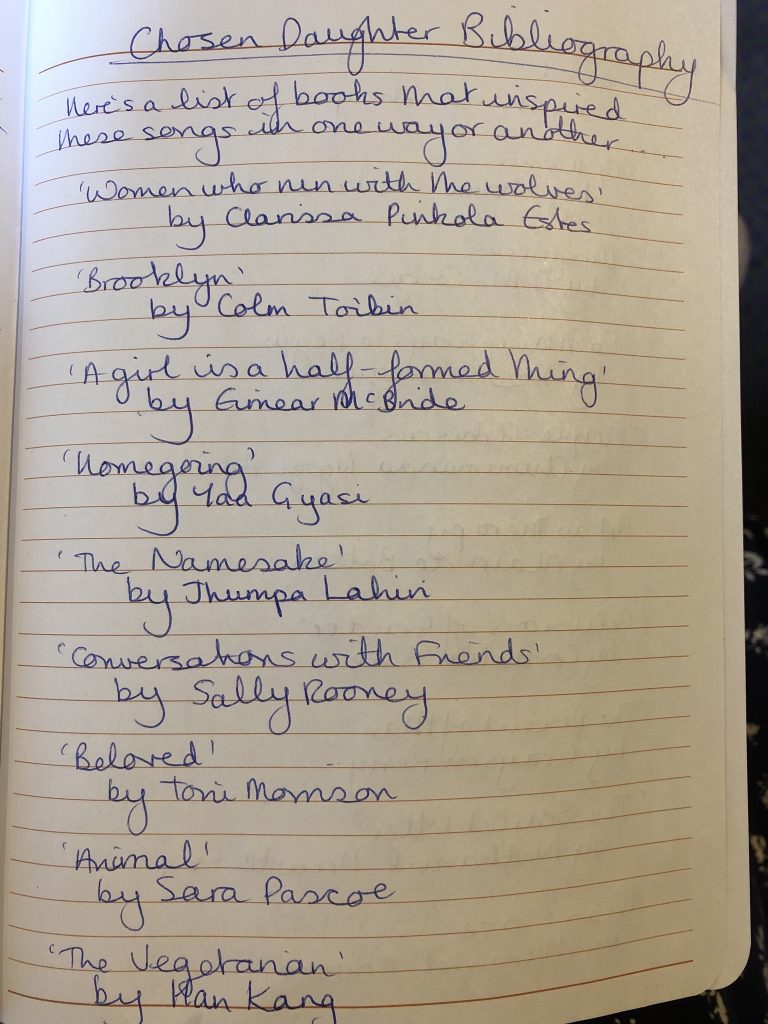 Chosen Daughter Bibliography
Here's a list of books that inspired
these songs in one way or another....
'Women who run with the wolves'
by Clarissa Pinkola Estes
'Brooklyn'
by Colm Toibin
'A girl is a half-formed thing'
by Eimear McBride
'Homegoing'
by Yaa Gyasi
'The Namesake'
by Jhumpa Lahiri
'Conversations with Friends'
by Sally Rooney
'Beloved'
by Toni Morrison
'Animal'
by Sara Pascoe
'The Vegetarian'
by Han Kang